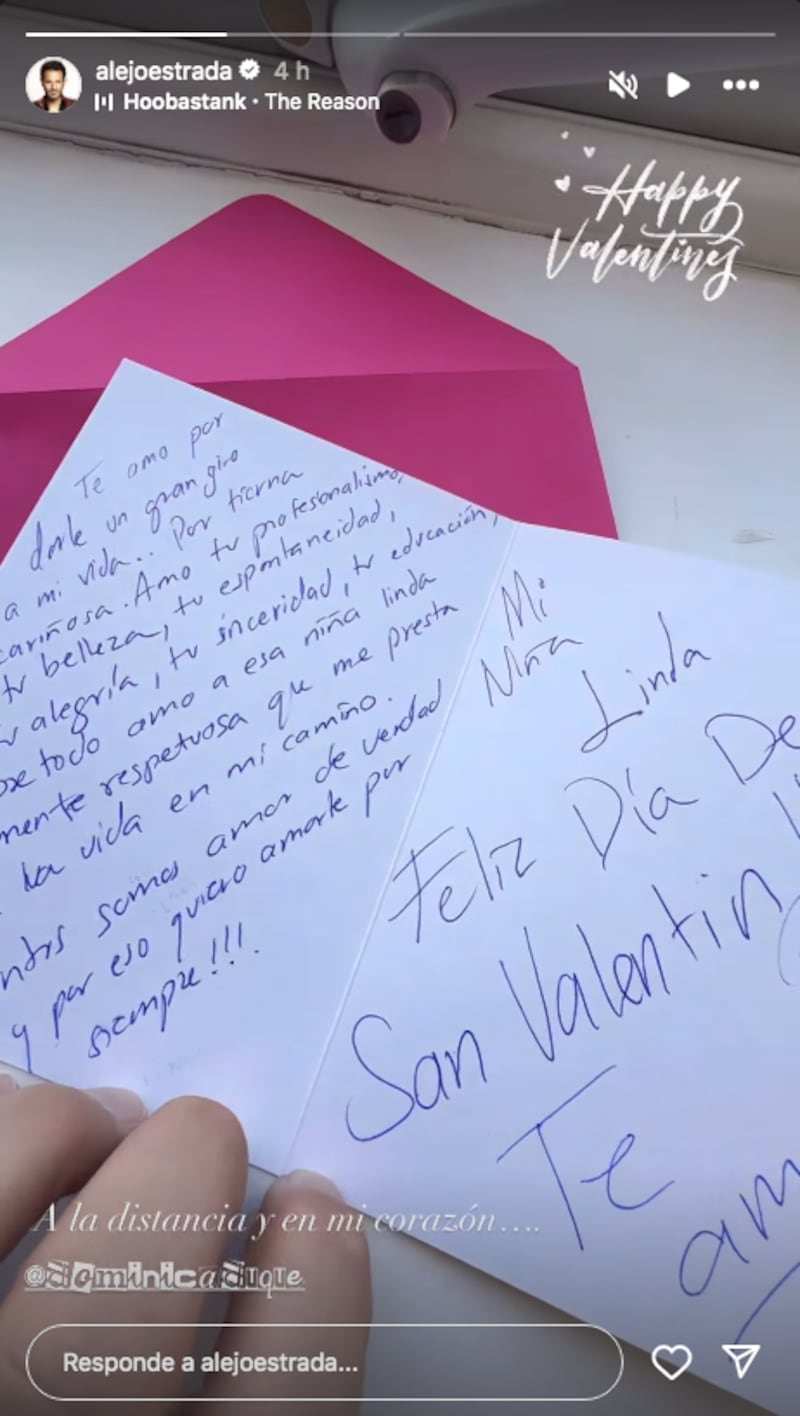 alejoestrada 4 h
Hoobastank · The Reason
Happy
Valentines
Te amo por
darle un gran giro
a mi vida.. Por tierna
cariñosa. Amo tu profesionalismo,
tu belleza, tu espontaneidad,
tu alegría, tu sinceridad, tu educación,
todo amo a esa niña linda
mente respetuosa que me presta
la vida en mi camino.
somos amor de verdad
y por eso quiero amarte por
siempre!!!.
Mi
Niña
Linda
Feliz Día De
San Valentin
Te
am
A la distancia y en mi corazón….
@dominicaduque
Responde a alejoestrada...